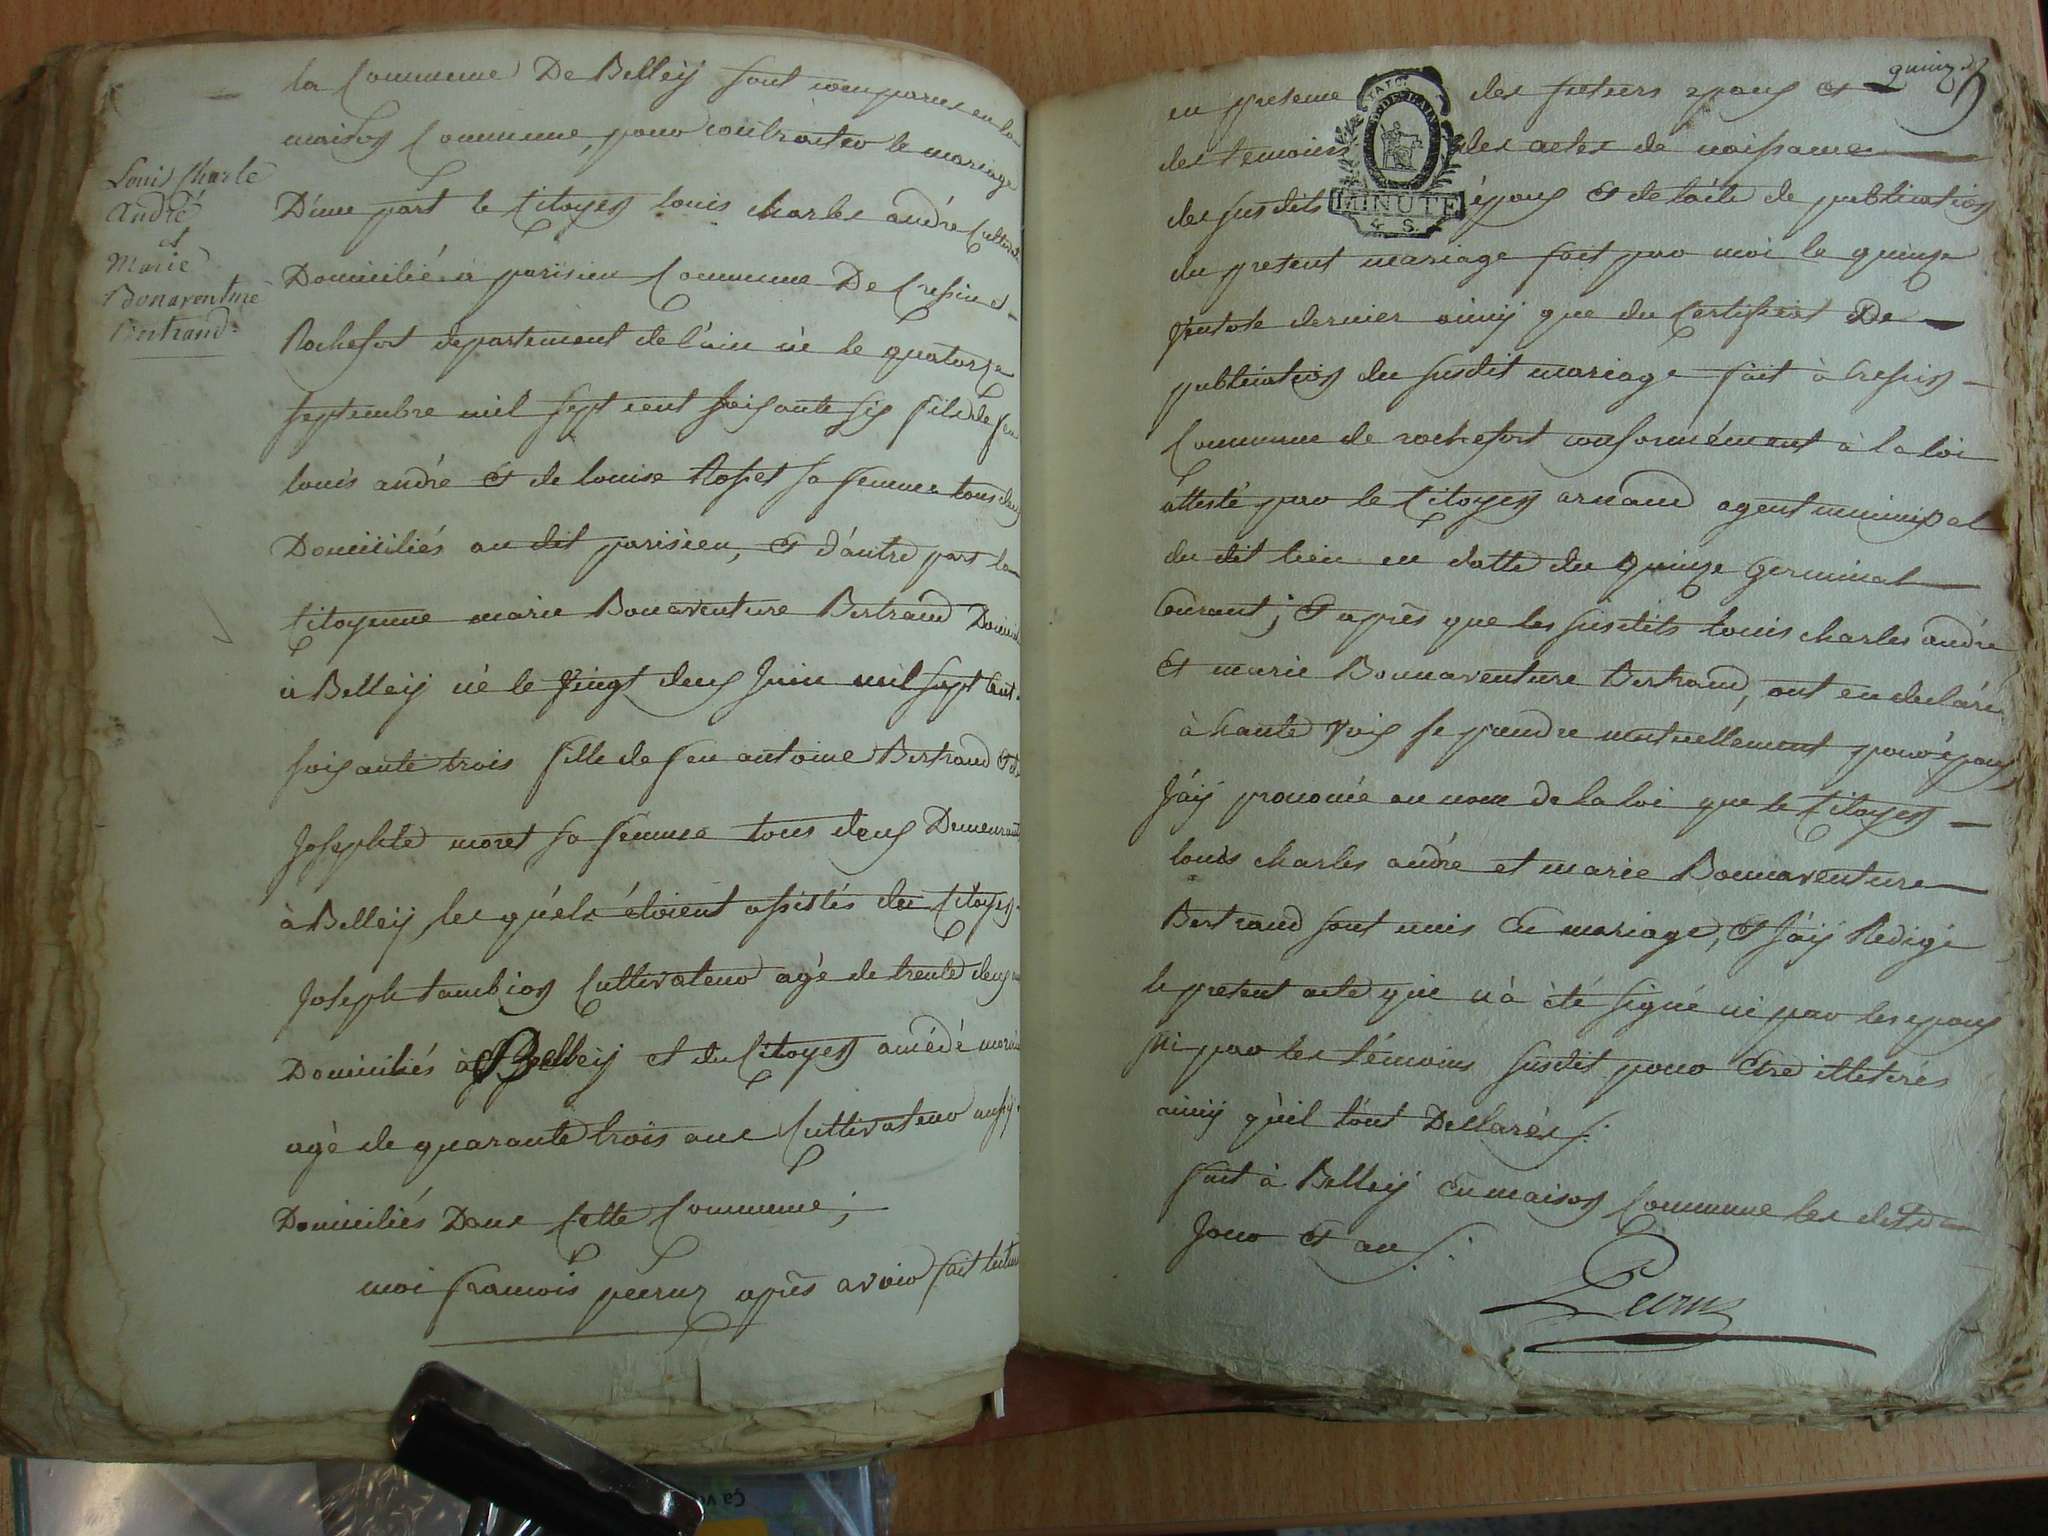 la Commune De Belley sont comparus en la
maison Commune, pour contracter le mariage
Louis Charle
André
et
Marie
Bonaventure
Bertrand
D'une part le Citoyen louis charles andré Cultivat
Domicilié à parisieu Commune De Cressin et
Rochefort departement de l'ain né le quatorze
septembre mil sept cent soixante six fils de feu
louis andré et de louise Rosset sa femme tous deux
Domiciliés au dit parisieu, et d'autre part la
Citoyenne marie Bonaventure Bertrand Domicil
à Belley né le vingt deux Juin mil sept cent
soixante trois fille de feu antoine Bertrand et de
Josephte moret sa femme tous deux Demeurant
à Belley, les quéls étoient assistés du Citoyen
Joseph tambion Cultivateur agé de trente deux
Domiciliés à Belley et du Citoyen amédé
agé de quarante trois ans Cultivateur aussy
Domiciliés Dans Cette Commune;
moi francois peeruz après avoir fait lecture
quinze
en presence des futurs epoux et
des temoins des actes de naissance
TIMBRE
MINUTE
4 S.
des susdits époux et de l'acte de publication
du present mariage fait par moi le quinze
ventose dernier ainsy que du Certificat De
publication du susdit mariage fait à Cressin
Commune de rochefort conformément à la loi
attesté par le Citoyen arnaud agent municipal
du dit lieu en datte du quinze Germinal
Courant; Et après que les susdits louis charles andré
Et marie Bonnaventure Bertrand, ont en declaré
à haute voix se prendre mutuellement pour époux
J'áy prononcé au nom de la loi que le Citoyen
louis charles andré et marie Bonnaventure
Bertrand sont unis En mariage, Et J'áy Redigé
le present acte qui n'à été signé ni par les epoux
ni par les témoins susdit pour Etre illeterés
ainsy qu'il l'ont Dellarés
fait à Belley En maison Commune les dits
Jour et an